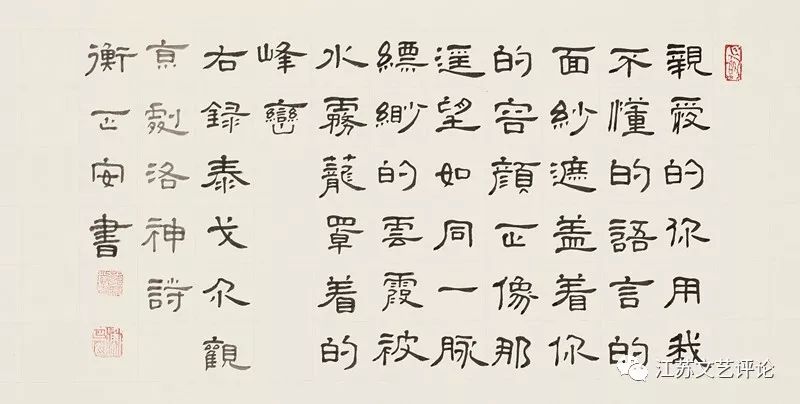 親愛的你用我
不懂的語言的
面紗遮盖着你
的容顔正像那
遥望如同一脉
縹緲的雲霞被
水霧蘢罩着的
峰巒
右録泰戈尔觀
京劇洛神詩
衡正安書
江苏文艺评论